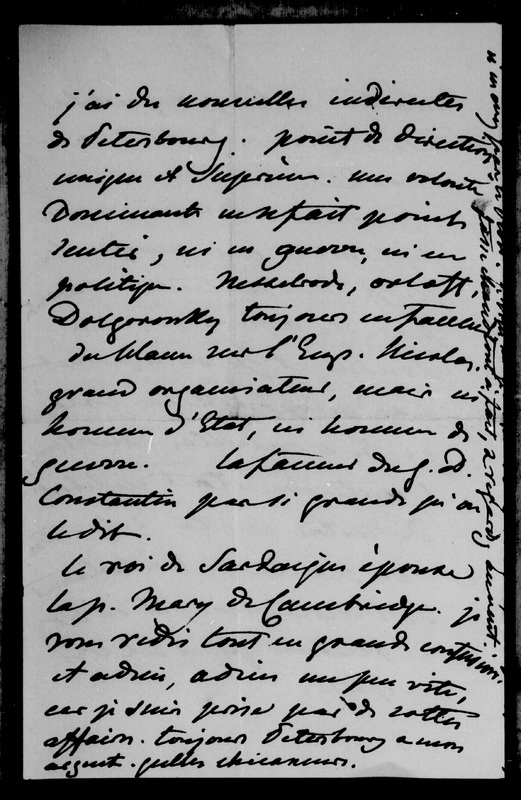 j'ai des nouvelles indirectes
de Petersbourg. point de direction
unique et supérieure. une volonté
Dominante ne se fait point
sentir, ni en guerre, ni en
politique. Nesselrode, orloff,
Dolgorouky toujours en faveur
du blame sur l'Emp. Nicolas.
grand organisateur, mais ni
homme d'Etat, ni homme de
guerre. la faveur du g. d.
Constantin pas si grande qu'on
le dit.
le roi de Sardaigne épouse
la p. Mary de Cambridge. je
vous redis tout en grande confusion.
et adieu, adieu un peu vite,
car je suis prise par de sottes
affaires. toujours Petersbourg a mon
argent. quelles chicaneurs.